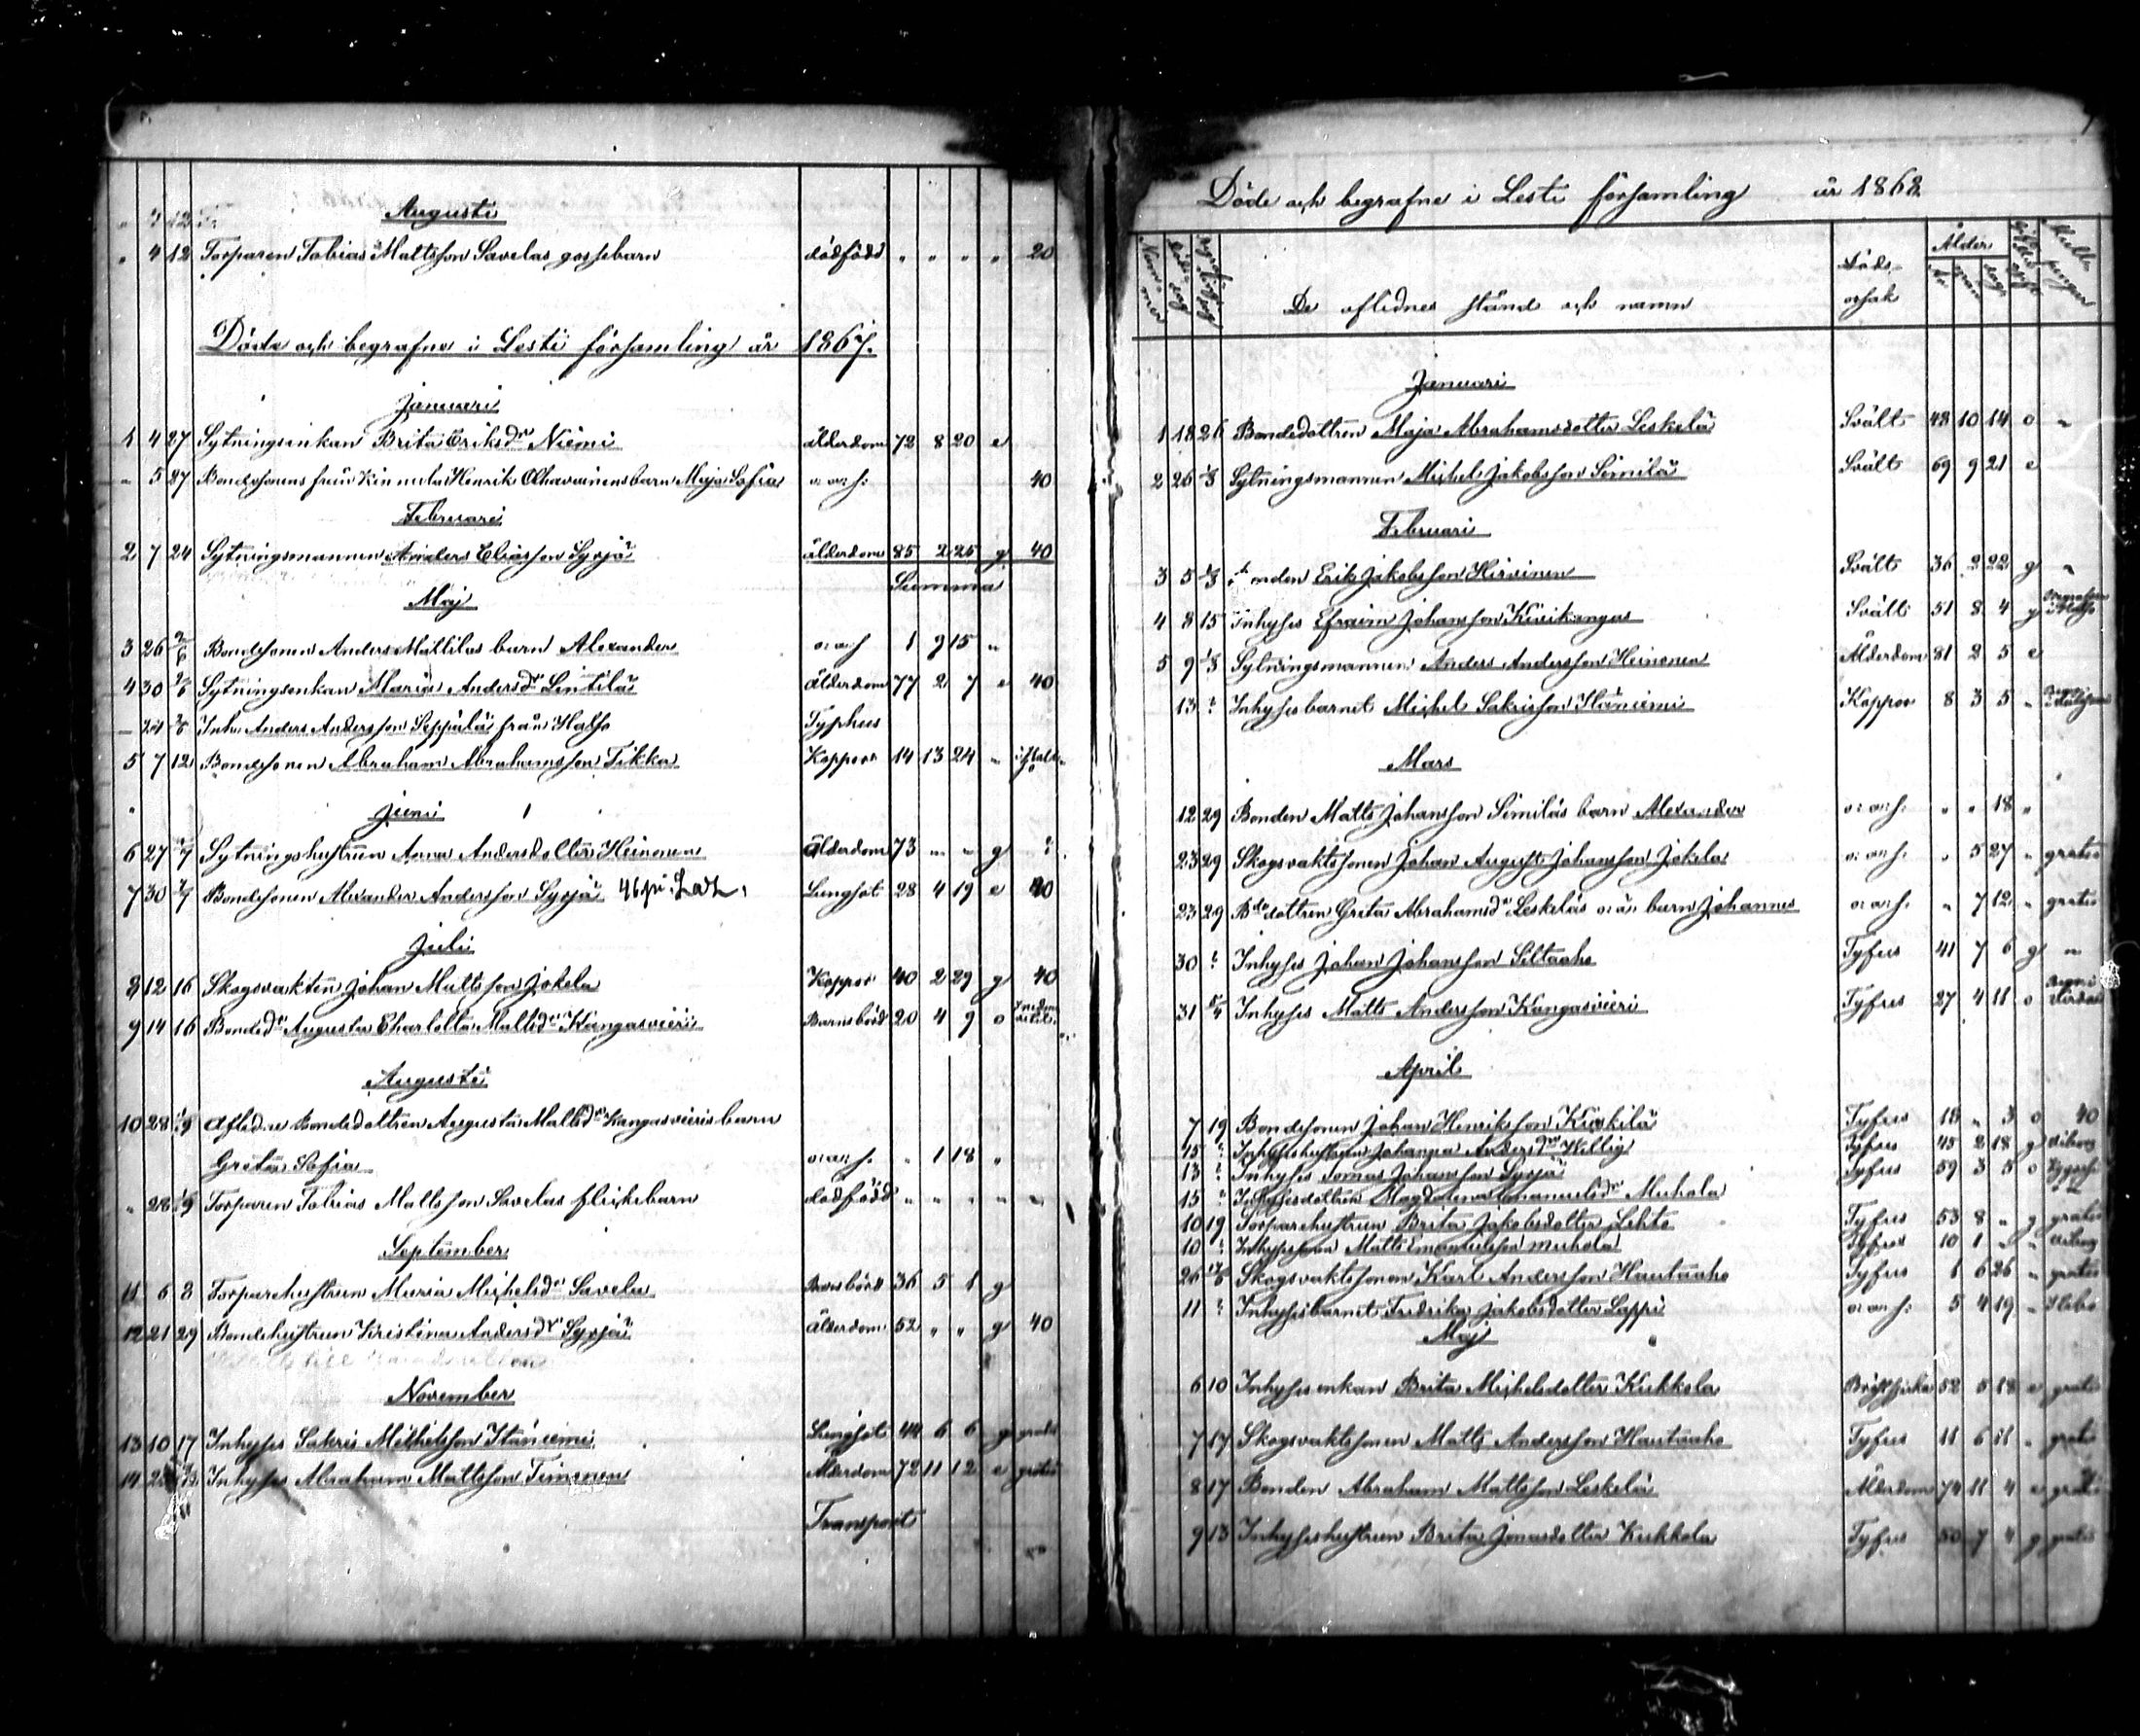 Augusti
" 4 12 Torparen Tobias Mattsson Savelas gossebarn dödfödd " " " " 20
Döde och begrafne i Lesti församling år 1867.
Januari
1 4 27 Sytningsenkan Brita Eriksdr Niemi ålderdom 72 8 20 e
" 5 27 Bondesonens från Kinnula Henrik barn Maja Sofia o: ä: s: 40
Februari
2 7 24 Sytningsmannen Anders Eliasson Syrjä ålderdom 85 2 25 g 40
Summa
Maj
3 26 Bondesonen Anders Mattilas barn Alexander o: ä: s 1 9 15 "
4 30 Sytningsenkan Maria Andersdr Lintilä Ålderdom 77 2 7 e 40
Inh. Anders Andersson Seppälä från Halso Typhus
5 7 12 Bondesonen Abraham Abrahamsson Tikka Koppor 14 13 24 "
Juni
6 27 Sytningshustrun Anna Andersdotter Heinonen Ålderdom 73 " " g ?
7 30 Bondesonen Alexander Andersson Syrjä Lungsot 28 4 19 e 40
Juli
8 12 16 Skogsvakten Johan Mattsson Jokela Koppor 40 2 29 g 40
9 14 16 Bondedr Augusta Charlotta Mattsdr Kangasvieri Barnsbörd 20 4 9 o
Augusti
10 28 1/9 Aflidne Bondedottren Augusta Mattsdr Kangasvieris barn
Greta Sofia o: ä: s. " 1 18 "
" 28 1/9 Torparen Tobias Mattsson Savelas flickebarn dödfödd " " " " "
September
11 6 8 Torparehustrun Maria Michelsdr Savela Barnsbörd 36 5 1 g
12 21 29 Bondehustrun Kristina Andersdr Syrjä Ålderdom 52 " " g 40
November
13 10 17 Inhyses Sakris Michelsson Itäniemi Lungsot 44 6 6 g gratis
14 Inhyses Abraham Mattsson Timonen Ålderdom 72 11 12 e gratis
Transport
Döde och begrafne i Lesti församling år 1868
Nummer Döds dag Begrafnings dag De aflidnes stånd och namn Döds orsak Ålder År mån dagr Mullpengar
Januari
1 18 26 Bondedottren Maja Abrahamsdotter Leskelä Svält 48 10 14 o "
2 26 1/3 Sytningsmannen Michel Jakobsson Similä Svält 69 9 21 e
Februari
3 5 1/3 Erik Jakobsson Hirvinen Svält 36 2 22 g "
4 8 15 Inhyses Efraim Johansson Kivikangas Svält 51 8 4 g
5 9 1/3 Sytningsmannen Anders Andersson Heinonen Ålderdom 81 2 5 e
13 ? Inhysesbarnet Michel Sakrisson Itäniemi Koppor 8 3 5 "
Mars
12 29 Bonden Matts Johansson Similäs barn Alexander o: ä: s. " " 18 "
23 29 Skogsvaktssonen Johan August Johansson Jokela o: ä: s. " 5 27 " gratis
23 29 Bdedottren Greta Abrahamsdr Leskeläs o: ä: barn Johannes o: ä: s. " 7 12 " gratis
30 ? Inhyses Johan Johansson Siltaaho Tyfus 41 7 6 g "
31 5/4 Inhyses Matts Andersson Kangasvieri Tyfus 27 4 11 o
April
7 19 Bondesonen Johan Henriksson Kuckilä Tyfus 18 " 3 o 40
15 ? Inhyseshustrun Johanna Andersdr Willig Tyfus 45 2 18 g
13 ? Inhyses Tomas Johansson Syrjä Tyfus 59 3 5 o
15 ? Inhysesdottren Magdalena Emanuelsdr Muhola
10 19 Torparehustrun Brita Jakobsdotter Lehto Tyfus 53 8 " g gratis
10 ? Inhysessonen Matts Emanuelsson Muhola Tyfus 10 1 " "
26 Skogsvaktssonen Karl Andersson Hautaaho Tyfus 1 6 26 " gratis
11 ? Inhysesbarnet Fredrika Jakobsdotter Lappi o: ä: s: 5 4 19 "
Maj
6 10 Inhysesenkan Brita Michelsdotter Kukkola Bröstsjuka 52 5 18 e gratis
7 17 Skogsvaktssonen Matts Andersson Hautaaho Tyfus 11 6 11 " gratis
8 17 Bonden Abraham Mattsson Leskelä Ålderdom 74 11 4 e gratis
9 13 Inhyseshustrun Brita Jonasdotter Kukkola Tyfus 50 7 4 g gratis